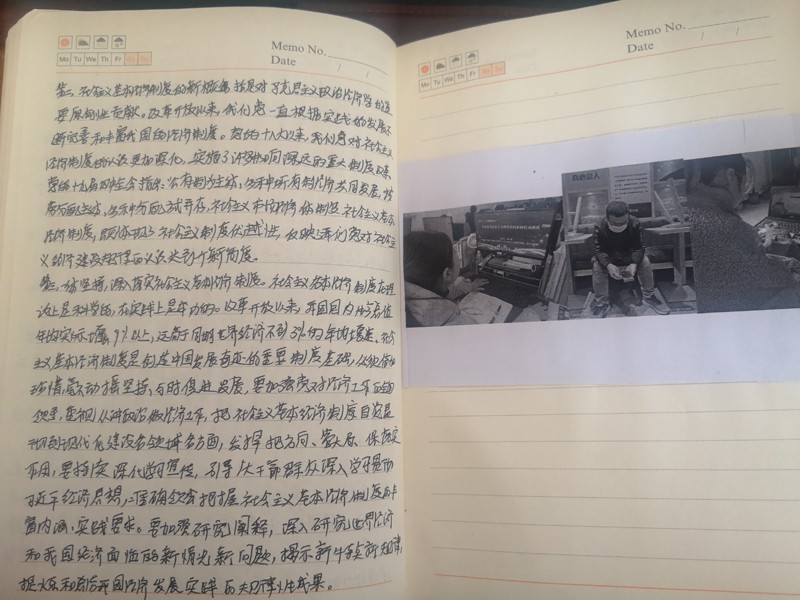 Memo No.
Date / /
Mo Tu We Th Fr Sa Su
社会主义基本经济制度的新概括是对马克思主义政治经济学的重
要原创性贡献。改革开放以来,我们党一直根据实践的发展不
断完善和丰富我国的经济制度。党的十八大以来,我们党对社会主义
经济制度的认识更加深化,实施了许多影响深远的重大制度改革
党的十九届四中全会指出:公有制为主体,多种所有制经济共同发展,按
劳分配为主体,多种分配方式并存,社会主义市场经济体制是社会主义基本
经济制度,既体现了社会主义制度优越性,反映
义经济建设规律的认识达到了新高度。
坚持,深入落实社会主义基本经济制度。社会主义基本经济制度在理
论上是科学的,在实践上是成功的。改革开放以来,我国国内生产总值
年均实际增长9%以上,远高于同期世界经济不到3%的年均增速。社会
主义基本经济制度是创造中国发展奇迹的重要制度基础,
毫不动摇坚持,与时俱进发展,要加强党对经济工作的
领导,从讲政治做经济工作,把社会主义基本经济制度自觉
现代化建设各领域各方面,发挥把方向、管大局、保落实
作用,要持续深化学习宣传,引导广大干部群众深入学习
习近平经济思想,准确领会把握社会主义基本经济制度的丰
富内涵、实践要求。要加强研究阐释,深入研究世界经济
和我国经济面临的新情况新问题,揭示新特点新规律,
提炼和总结我国经济发展实践的规律性成果。
Memo No.
Date / /
Mo Tu We Th Fr Sa Su